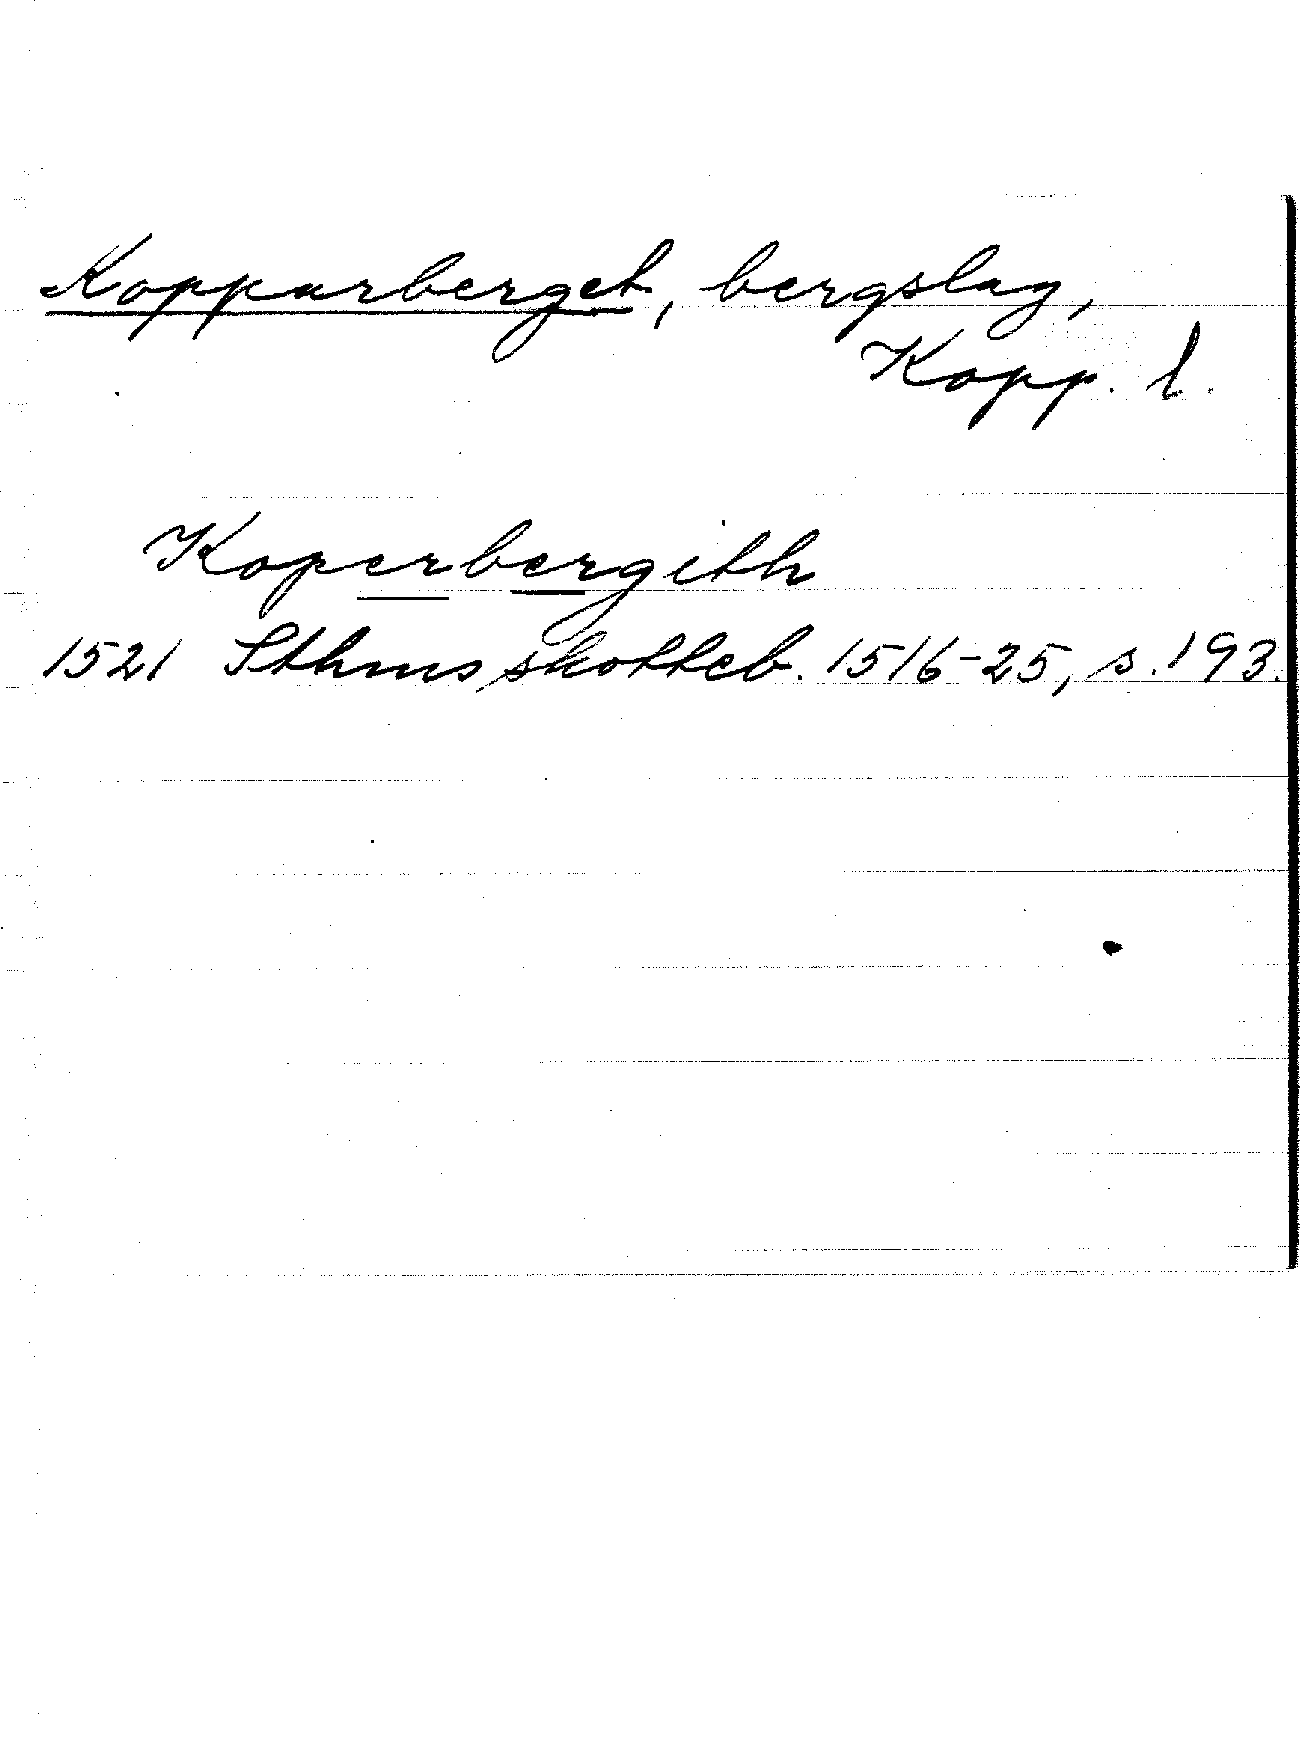 Kopparberget, bergslag,
Kopp. l.
Koperbergith
1521 Sthms skotteb. 1516-25, s. 193.